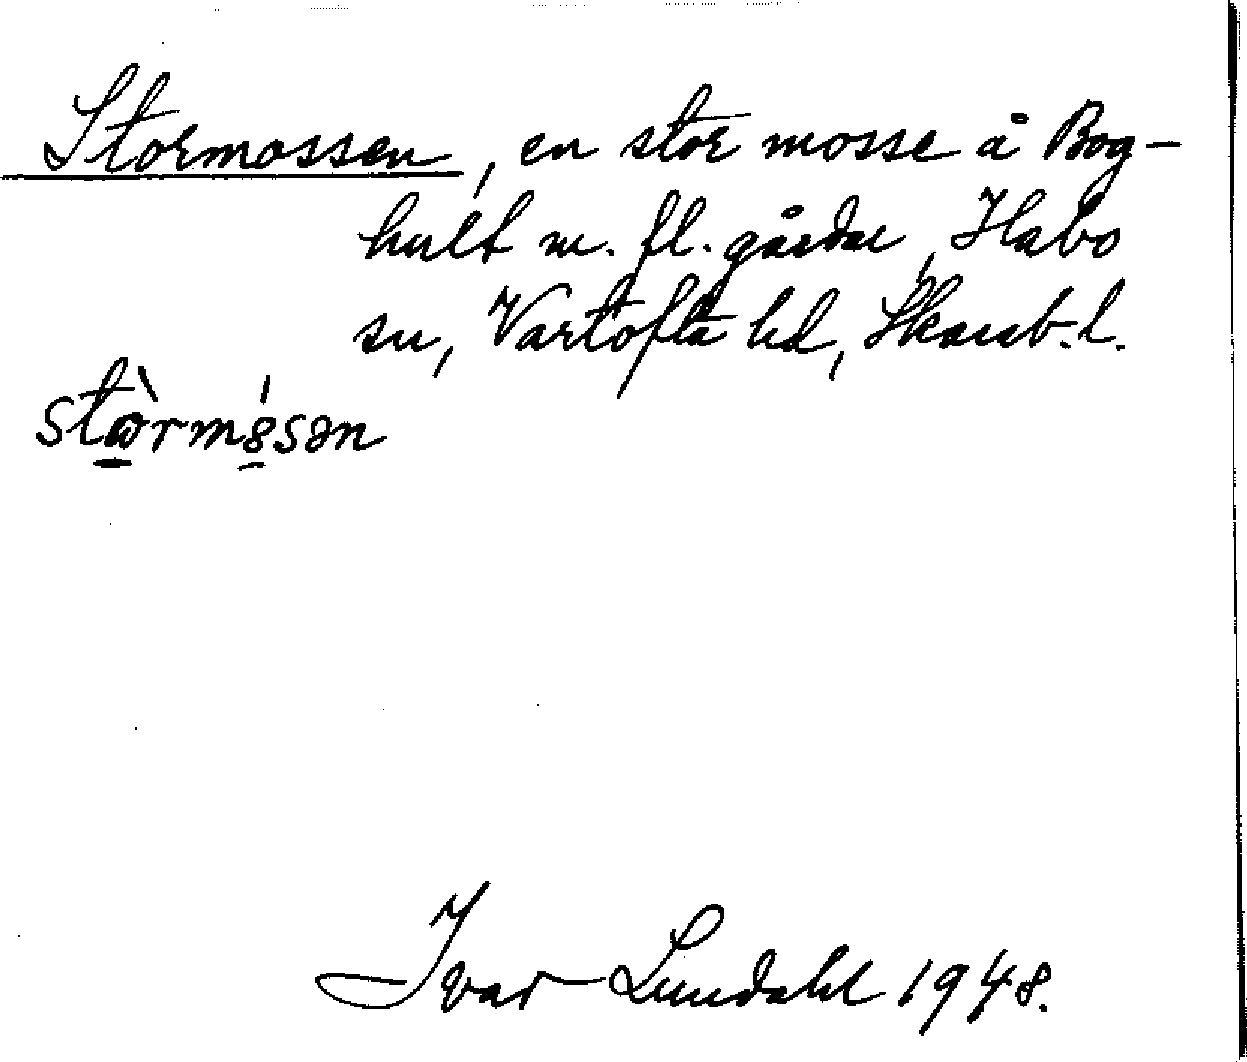 Stormossen, en stor mosse å Bog-
hult m. fl. gårdar, Habo
sn, Vartofta hd, Skarab. l.
stòrmósən
Ivar Lundahl 1948.